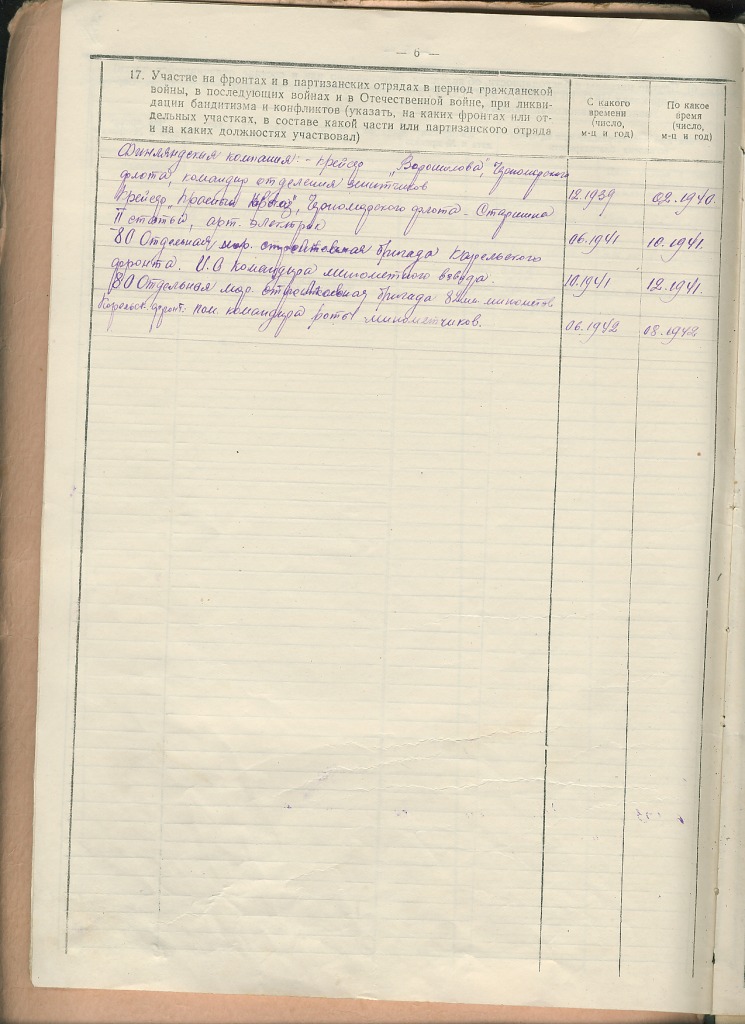 — 6 —
17. Участие на фронтах и в партизанских отрядах в период гражданской
войны, в последующих войнах и в Отечественной войне, при ликви-
дации бандитизма и конфликтов (указать, на каких фронтах или от-
дельных участках, в составе какой части или партизанского отряда
и на каких должностях участвовал)
С какого
времени
(число,
м-ц и год)
По какое
время
(число,
м-ц и год)
Финляндская компания: - крейсер „Ворошилова", Черноморского
флота, командир отделения зенитчиков 12.1939 02.1940.
Крейсер „Красный Кавказ", Черноморского флота - Старшина
II статьи, арт. электрик 06.1941 10.1941.
80 Отдельная мор. стрелковая бригада Карельского
фронта. И.О командира минометного взвода. 10.1941 12.1941.
80 Отдельная мор. стрелковая бригада 82мм минометов
Карельск. фронт. пом. командира роты минометчиков. 06.1942 08.1942